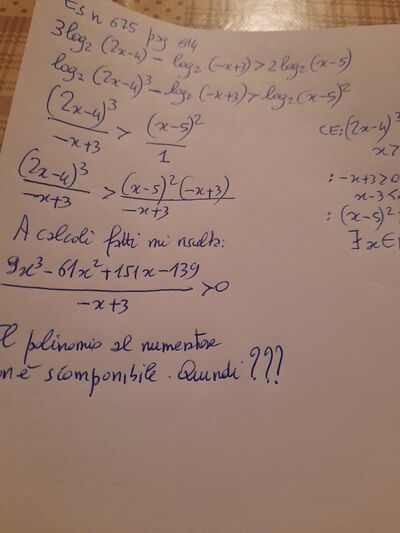 ES n 675 pag 614
3log₂ (2x-4) - log₂ (-x+3) > 2log₂ (x-5)
log₂ (2x-4)³ - log₂ (-x+3) > log₂ (x-5)²
(2x-4)³/-x+3 > (x-5)²/1
CE: (2x-4)³
x>
(2x-4)³/-x+3 > (x-5)²(-x+3)/-x+3
: -x+3>0
x-3<
: (x-5)²
∃ x∈
A calcoli fatti mi risulta:
9x³-61x²+151x-139/-x+3 >0
Il polinomio al numeratore
on è scomponibile. Quindi ???